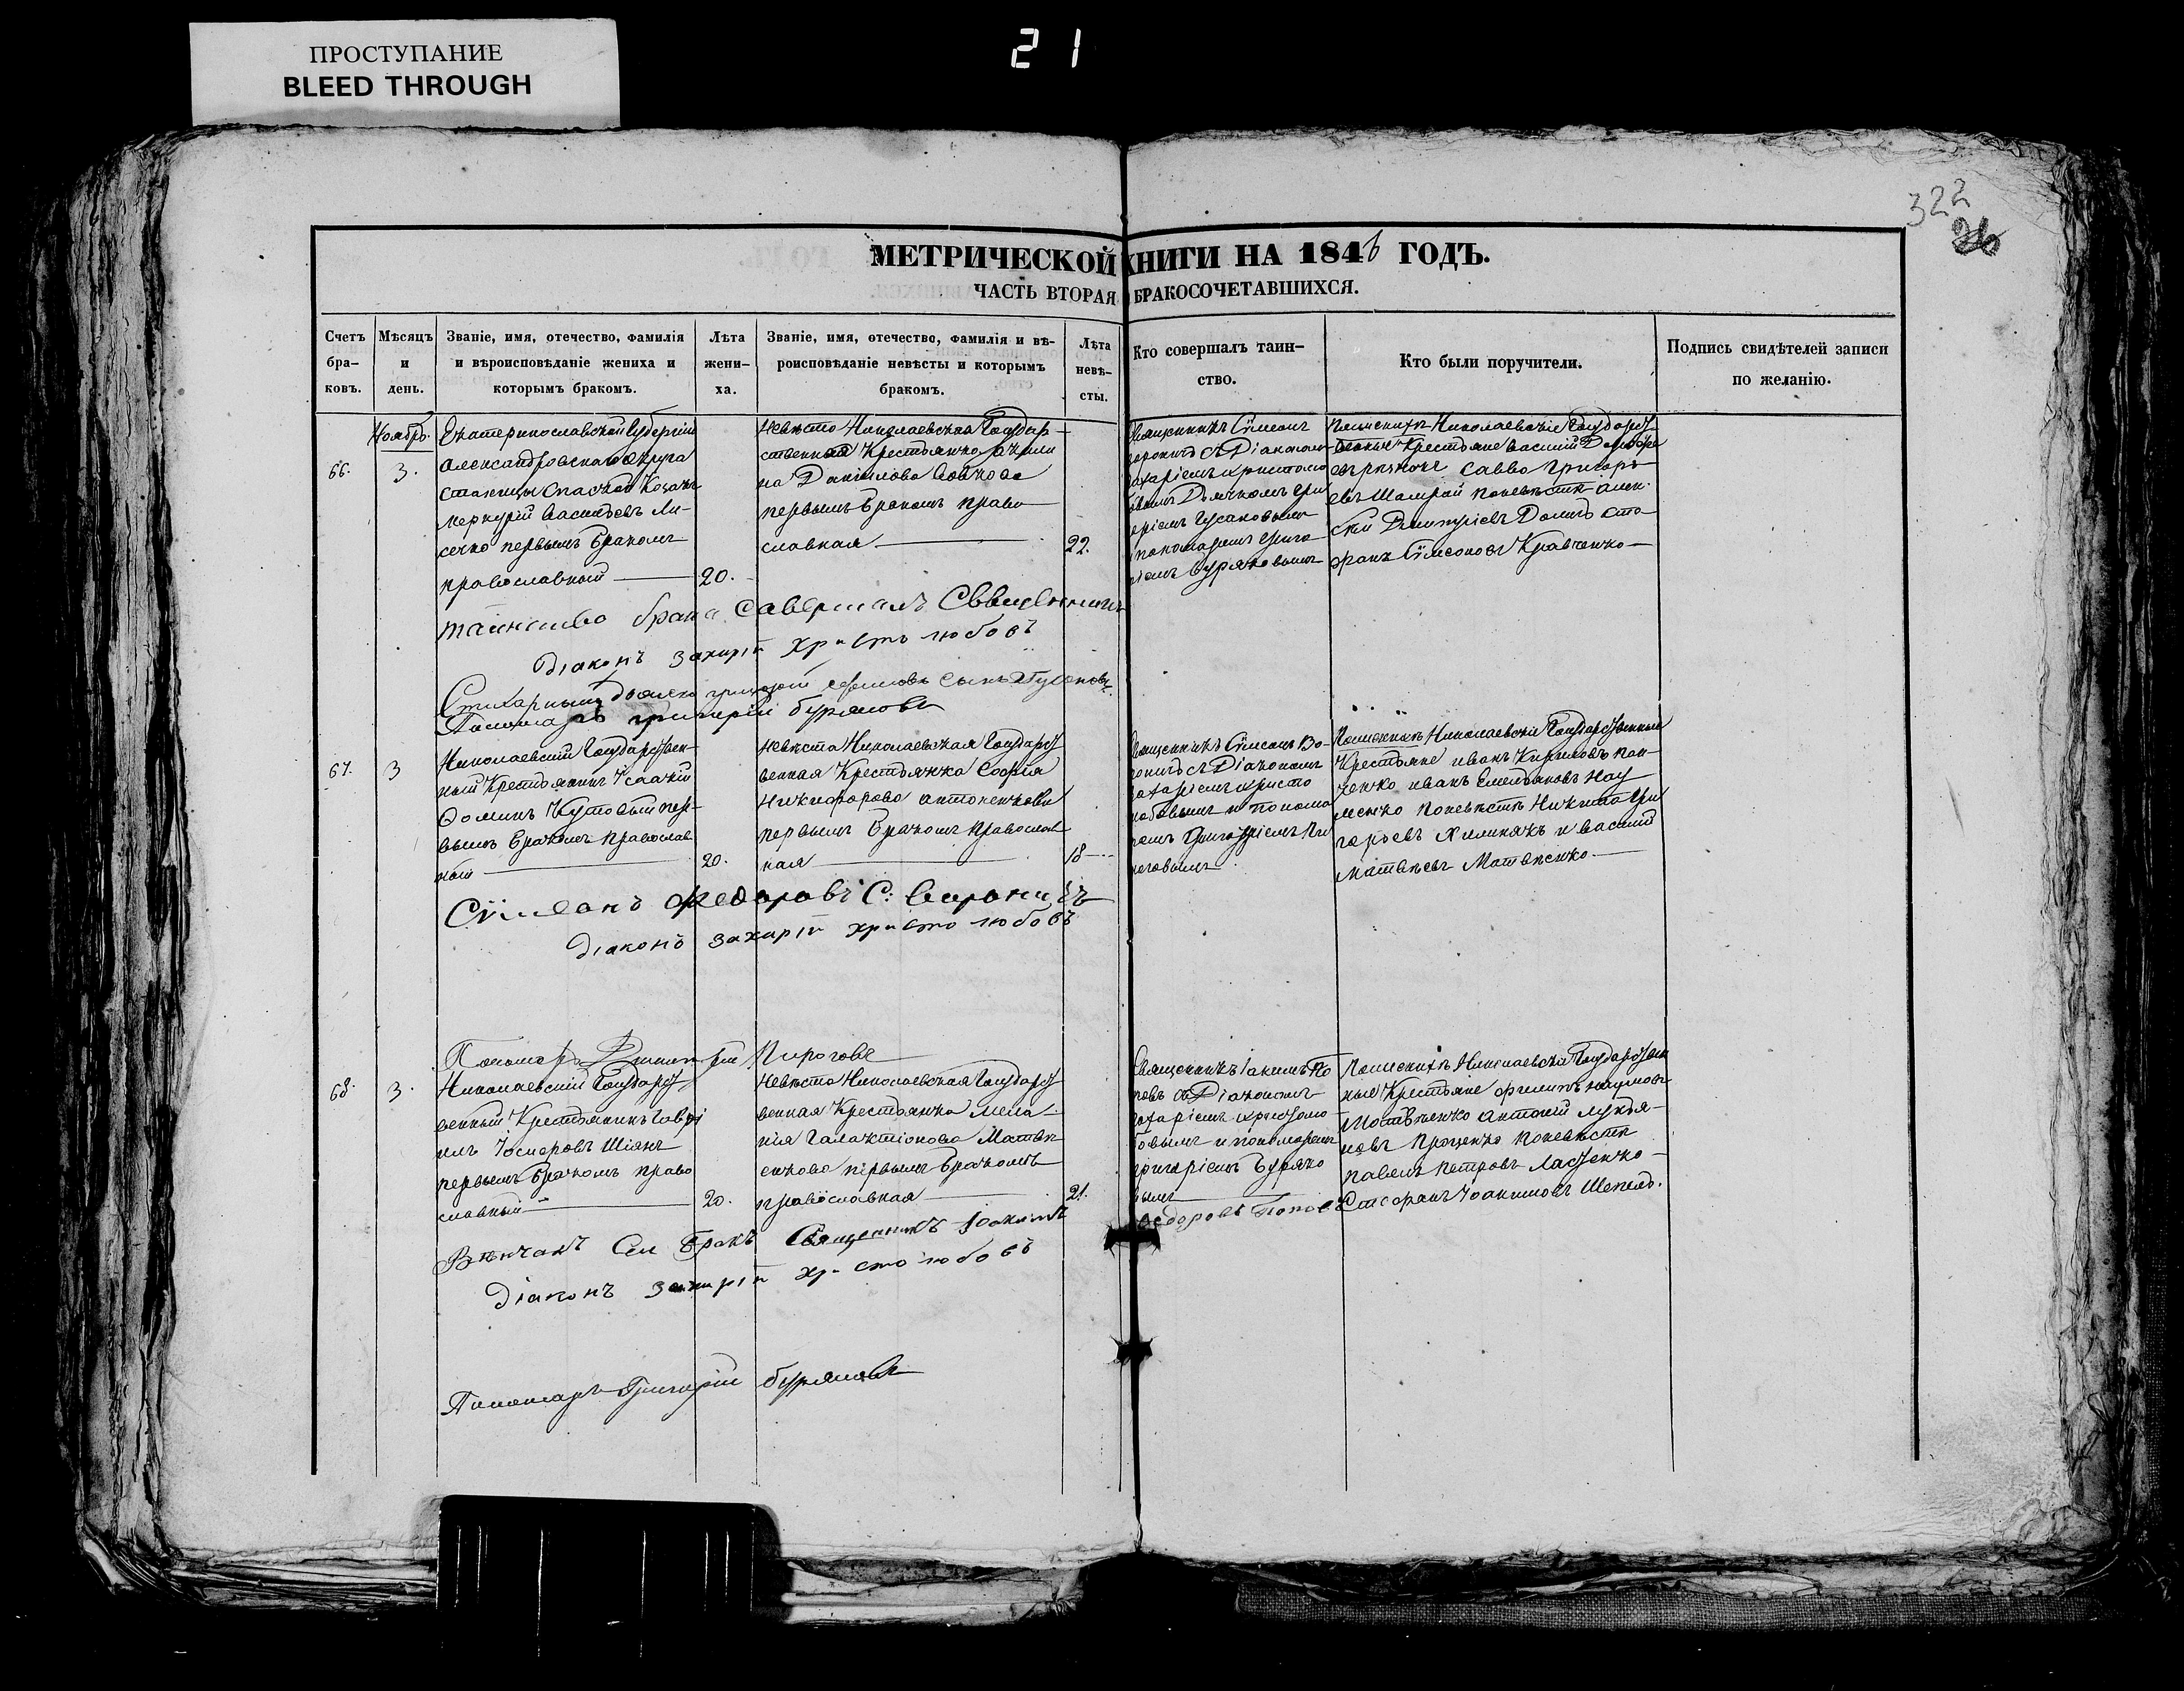 ПРОСТУПАНИЕ
BLEED THROUGH
21
322
26
МЕТРИЧЕСКОЙ КНИГИ НА 1846 ГОДЪ.
ЧАСТЬ ВТОРАЯ БРАКОСОЧЕТАВШИХСЯ.
Счетъ
бра-
ковъ.
Мѣсяцъ
и
день.
Званіе, имя, отечество, фамилія
и вѣроисповѣданіе жениха и
которымъ бракомъ.
Лѣта
жени-
ха.
Званіе, имя, отечество, фамилія и вѣ-
роисповѣданіе невѣсты и которымъ
бракомъ.
Лѣта
невѣ-
сты.
Кто совершалъ таин-
ство.
Кто были поручители.
Подпись свидѣтелей записи
по желанію.
66.
Ноябр.
3.
Екатеринославской Губерніи
Александровскаго округа
станицы Козакъ
Меркурій Васильевъ Ли-
сечко первымъ бракомъ
православный
20.
Невѣста Николаевская Государ-
ственная Крестьянка Акили
на Данилова
первымъ бракомъ право
славная
22.
Священникъ Сѵмеонъ
Вороничъ съ Діакономъ
Захаріемъ Христолю
бовымъ Дьячкомъ Гри
горіемъ Гусаковымъ
и пономаремъ Григо
ріемъ Буряковымъ
По женихѣ Николаевскіе Государст
венные Крестьяне Василій
Савва Григорь
евъ Шамрай по невѣстѣ Алек
сѣй Дмитріевъ Сте
фанъ Сѵмеоновъ Кравченко
таинство брака савершалъ Свѣщенникъ
Діаконъ Захарій Христолюбовъ
Стихарный Григорій сынъ Гусаковъ
Паномарь Григорій Буряковъ
67.
3
Николаевскій Государствен-
ный Крестьянинъ Исаакій
Фоминъ Кутовый пер-
вымъ бракомъ православ
ный
20.
Невѣста Николаевская Государст
венная Крестьянка Софія
Никифорова Антоненкова
первымъ бракомъ православ
ная
18
Священникъ Сѵмеонъ Во-
роничъ съ Діакономъ
Захаріемъ Христо
любовымъ и понома
ремъ Пи
роговымъ
По женихѣ Николаевскіе Государственные
Крестьяне Иванъ Кириловъ Пан-
ченко Иванъ Емельяновъ Нау
менко по невѣстѣ Никита Гри
горьевъ Хилинякъ и Василій
Матвѣевъ Матвѣенко
Сѵмеонъ Федоровъ С: Вароничъ
Діаконъ Захарій Христолюбовъ
Пономарь Дмитрій Пироговъ
68.
3.
Николаевскій Государст
венный Крестьянинъ Гаврі
илъ Іосифовъ Шіянъ
первымъ бракомъ право
славный
20.
Невѣста Николаевская Государст
венная Крестьянка Мела
нія Галактіонова Матвѣ
енкова первымъ бракомъ
православная
21.
Священникъ Іакимъ По
повъ съ Діакономъ
Захаріемъ Христолю
бовымъ и пономаремъ
Григоріемъ Буряко
вымъ
По женихѣ Николаевскіе Государствен
ные Крестьяне Филипъ Наумовъ
Антоній Лукья-
новъ Проценко по невѣстѣ
Павелъ Петровъ Ластенко
Стефанъ Іоакимовъ Шепель.
Вѣнчалъ Сей Бракъ Священникъ Іоакимъ Федоровъ Поповъ
Діаконъ Захарій Христолюбовъ
Пономарь Григорій Буряковъ